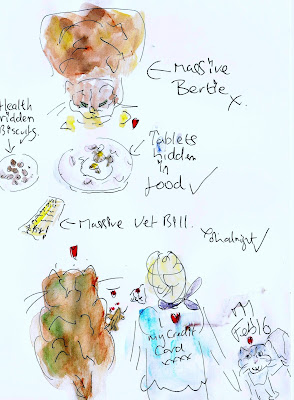 ← Massiive
Bertie
x.
Health
ridden
Biscuits.
Tablets
hidden
in
food ✓
← Massive Vet Bill.
✓
I
♥
my Credit
Card
xxxx
Feb 16